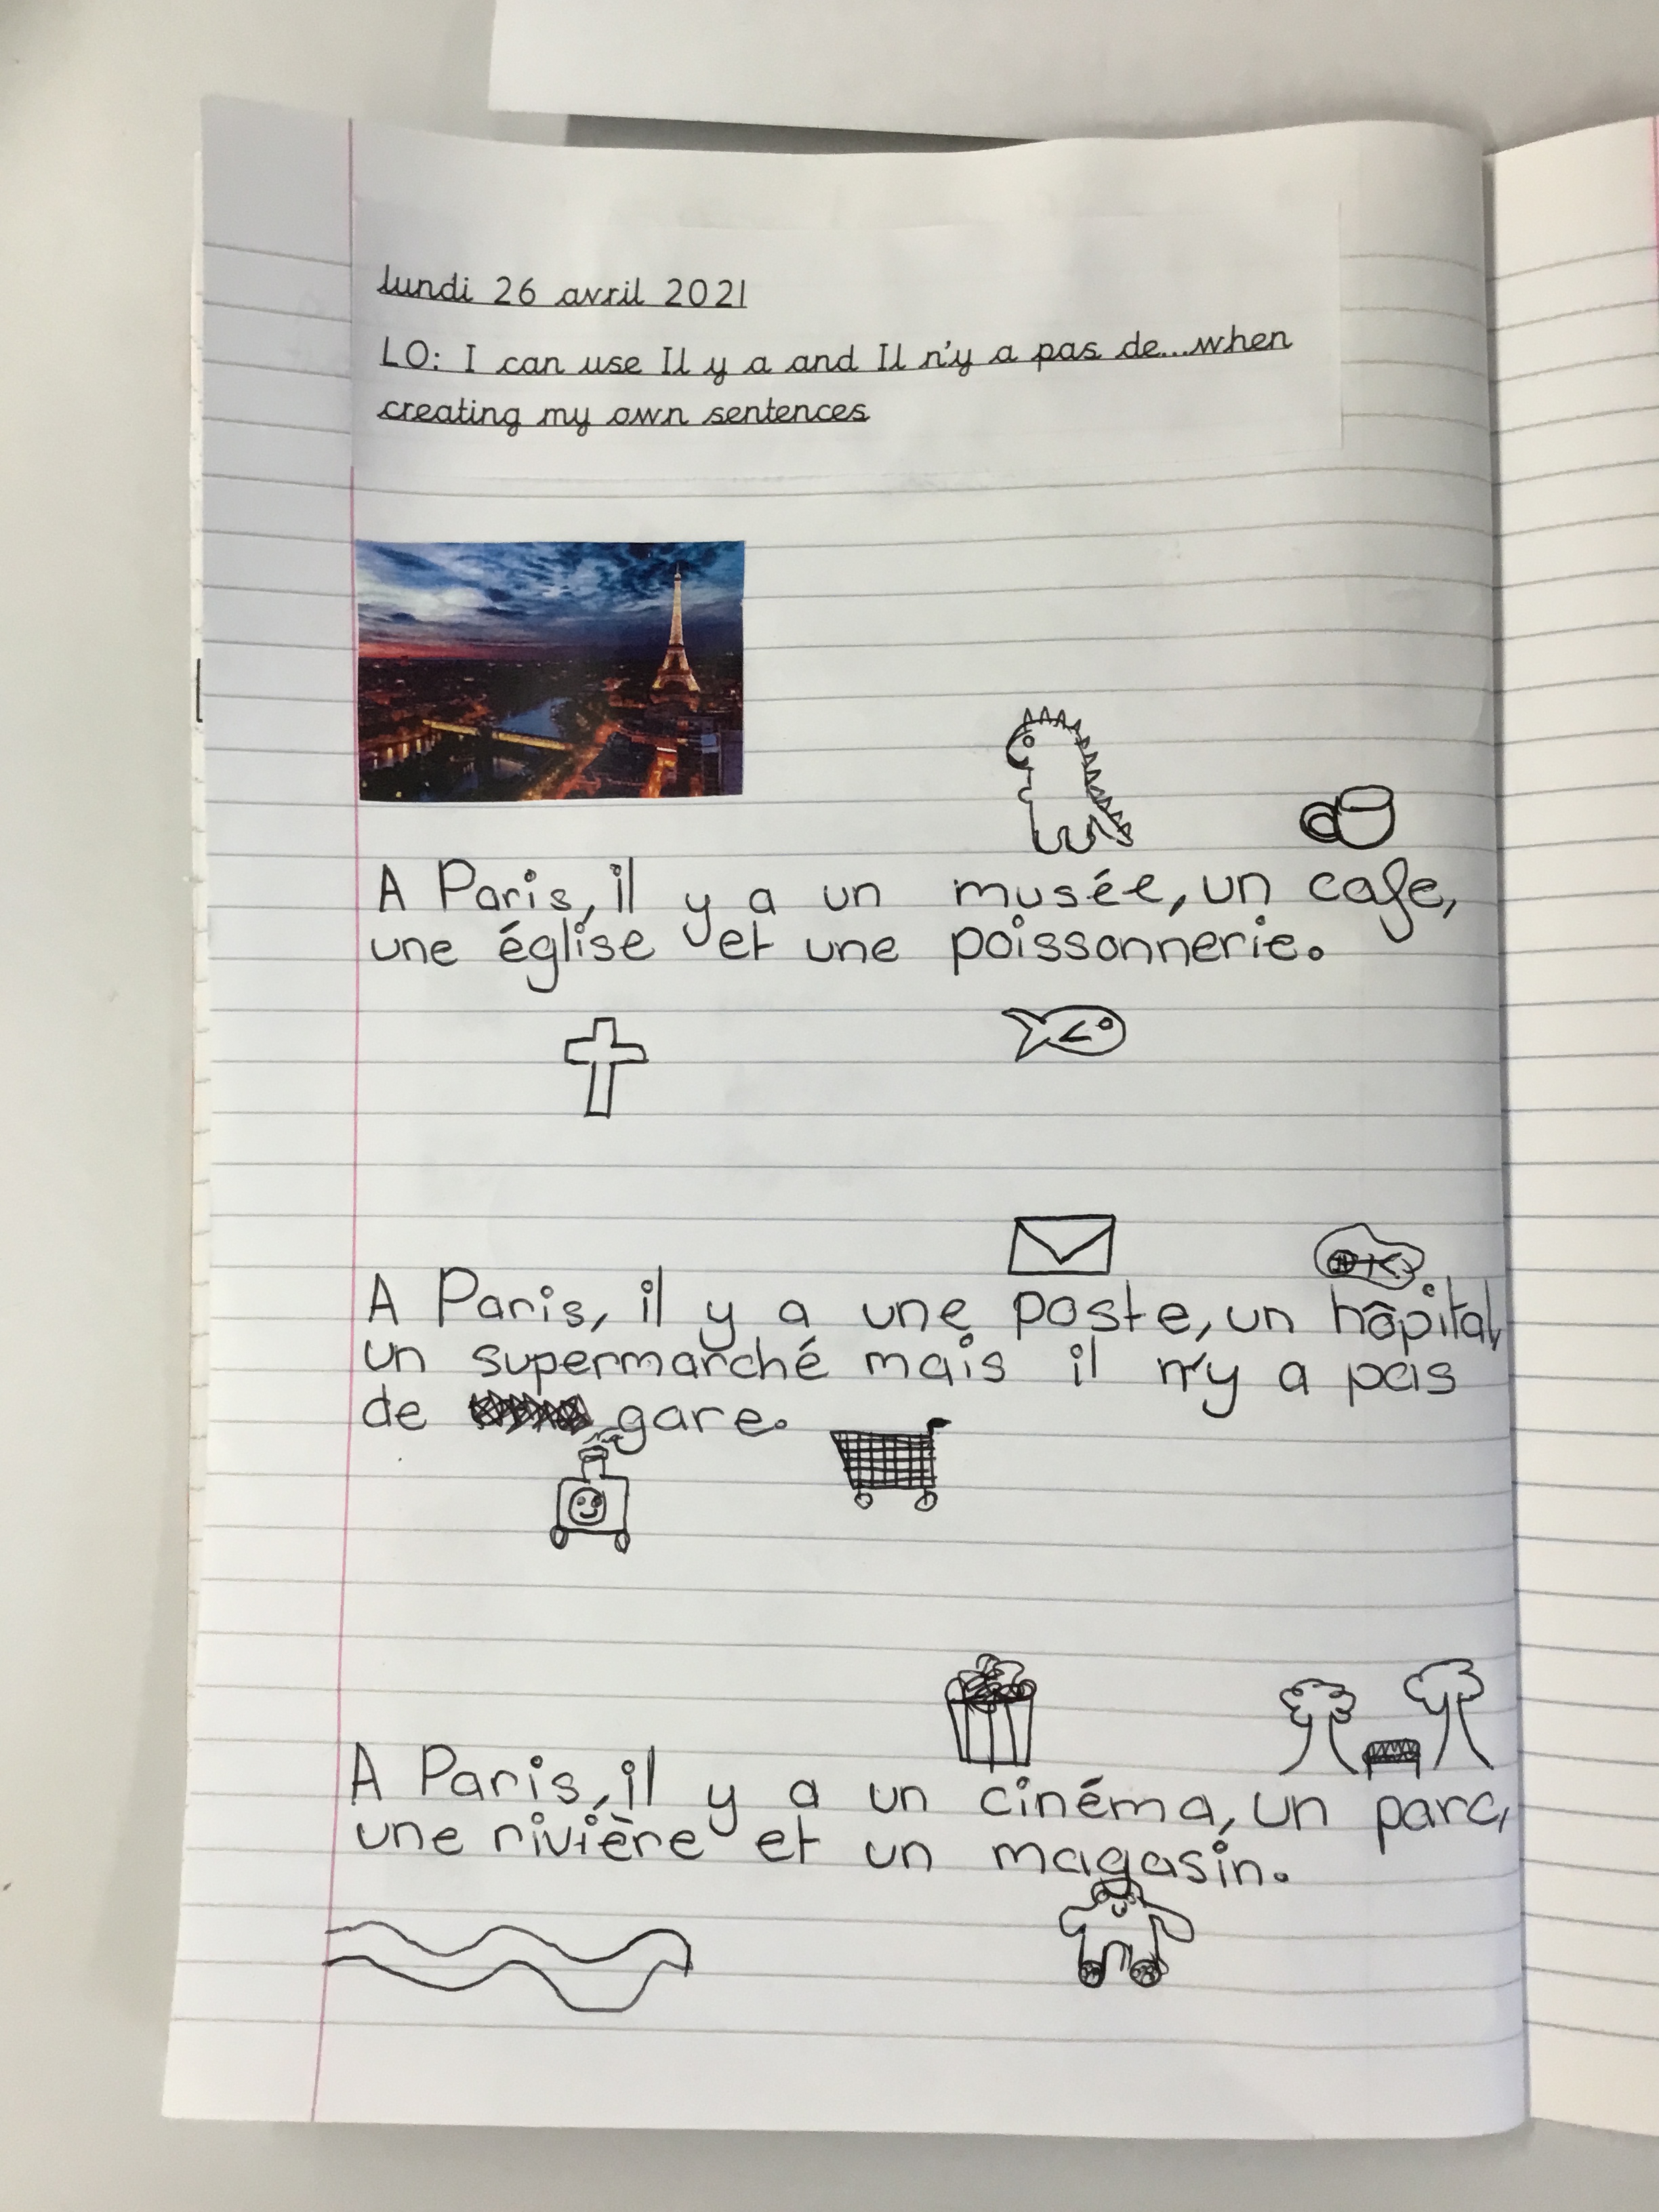 lundi 26 avril 2021
LO: I can use Il y a and Il n'y a pas de...when
creating my own sentences
A Paris, il y a un musée, un cafe,
une église et une poissonnerie.
A Paris, il y a une poste, un hôpital,
un supermarché mais il n'y a pas
de gare.
A Paris, il y a un cinéma, un parc,
une rivière et un magasin.